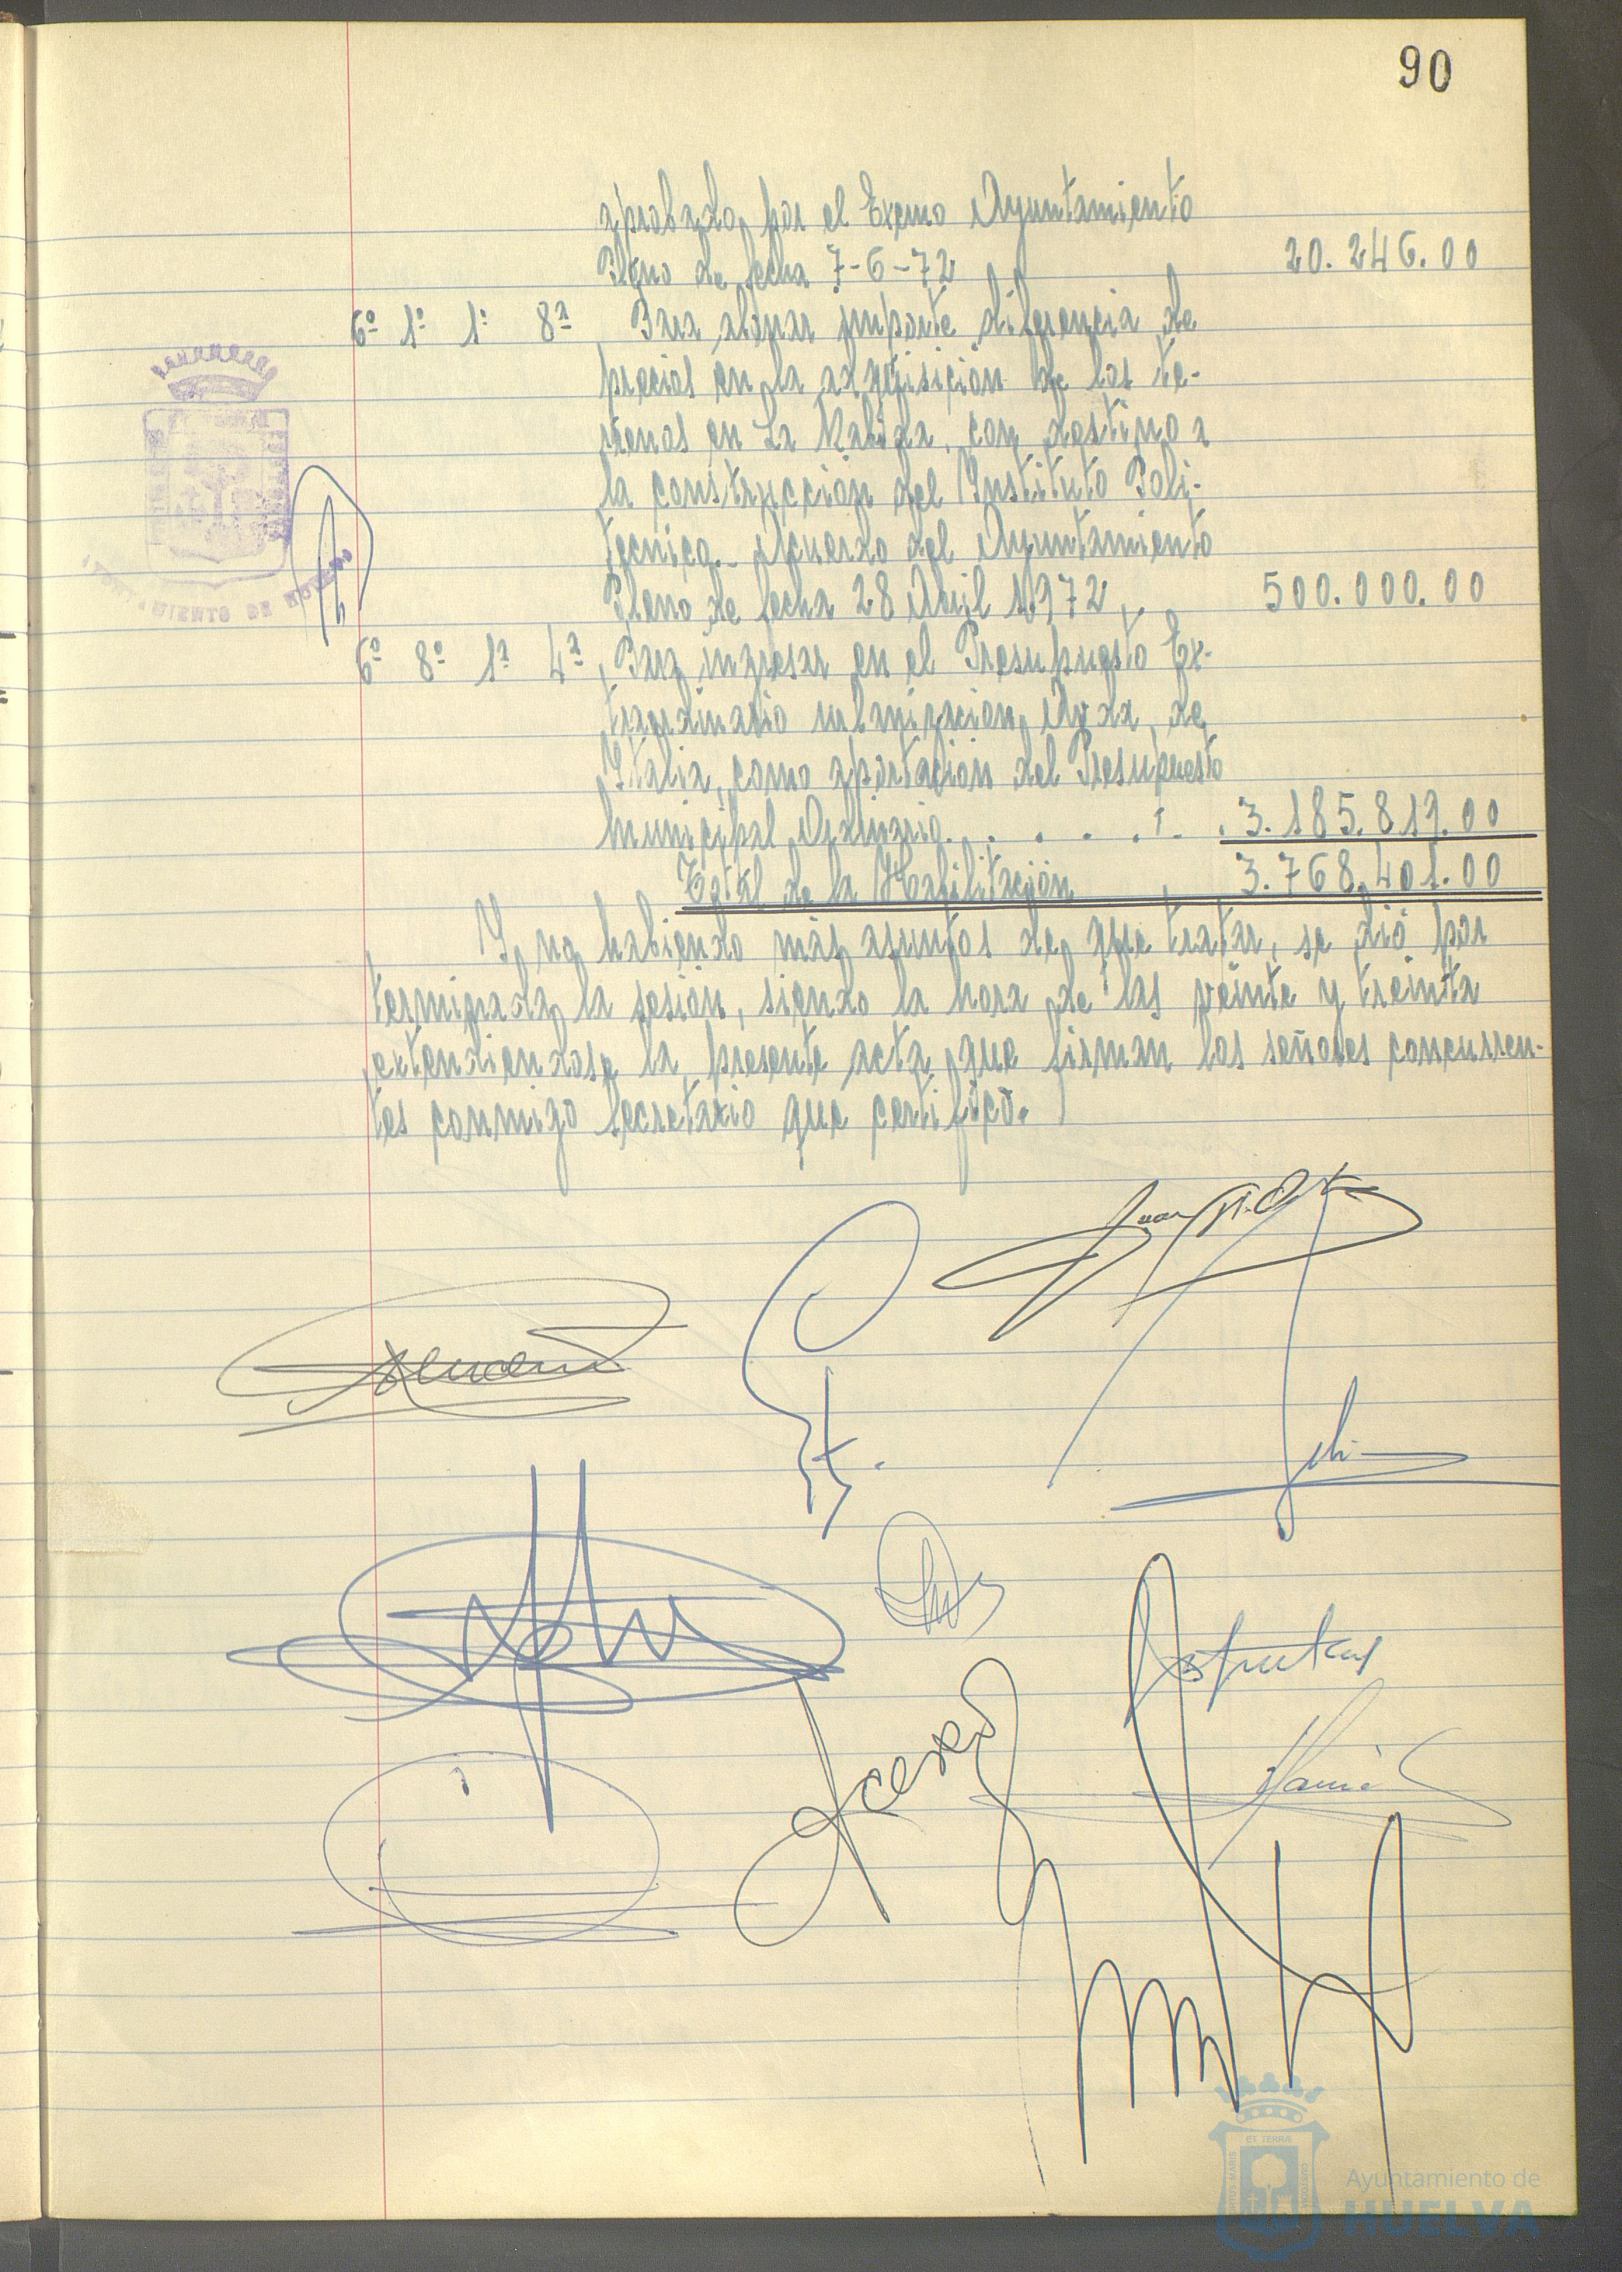 90
aprobado por el Excmo Ayuntamiento
Pleno de fecha 7-6-72 20.246.00
6º 1º 1º 8ª Para abonar importe diferencia de
precios en la adquisición de los te-
rrenos en La Rabida, con destino a
la construcción del Instituto Poli-
tecnico.- Acuerdo del Ayuntamiento
Pleno de fecha 28 Abril 1972, 500.000.00
6º 8º 1ª 4ª Para ingresar en el Presupuesto Ex-
traordinario urbanizacion Avda. de
Italia, como aportación del Presupuesto
Municipal Ordinario. . . . . . . 3.185.819.00
Total de la Habilitación 3.768.401.00
Y no habiendo más asuntos de que tratar, se dió por
terminada la sesión, siendo la hora de las veinte y treinta
extendiendose la presente acta que firman los señores concurren-
tes conmigo Secretario que certifico.
AYUNTAMIENTO DE HUELVA
Acevedo
Ayuntamiento de
HUELVA